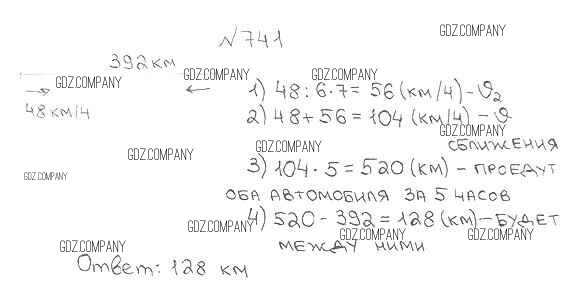 N741
GDZ.COMPANY
392 км
GDZ.COMPANY GDZ.COMPANY GDZ.COMPANY
48 км/ч
1) 48 : 6 · 7 = 56 (км/ч) - V₂
2) 48 + 56 = 104 (км/ч) - V
GDZ.COMPANY
сближения
GDZ.COMPANY GDZ.COMPANY
3) 104 · 5 = 520 (км) - проедут
GDZ.COMPANY
оба автомобиля за 5 часов
4) 520 - 392 = 128 (км) - будет
GDZ.COMPANY GDZ.COMPANY GDZ.COMPANY
между ними
GDZ.COMPANY
Ответ: 128 км